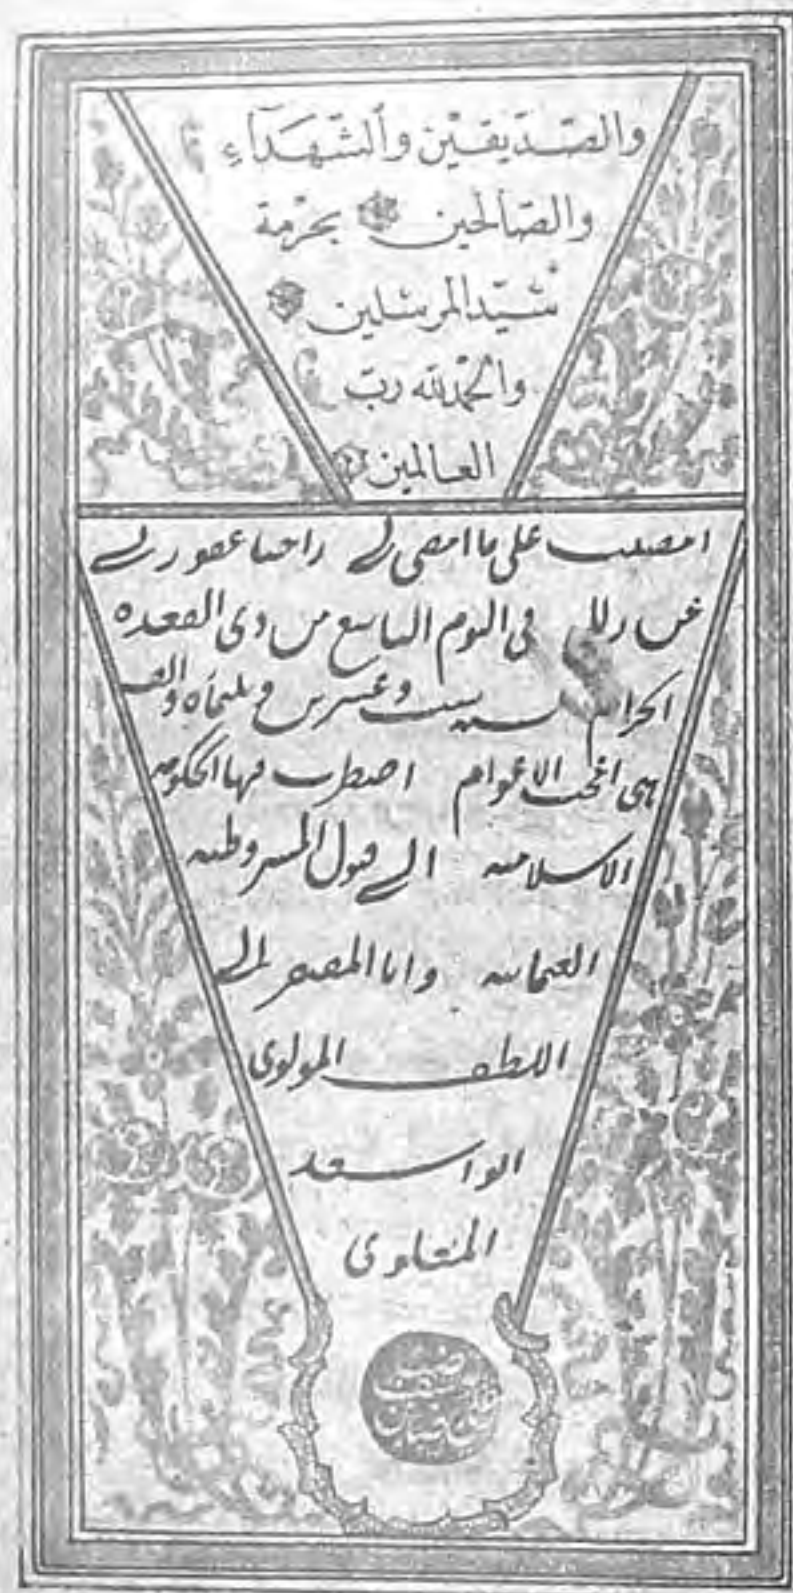 والصّدّيقين والشّهدآء
والصّالحين بحرمة
سيّد المرسلين
والحمد لله ربّ
العالمين
امضيت على ما امضى لى راجيا عفو ربى
فى اليوم التاسع من ذى القعده
الحرام سنه ست وعشرين و ثلثمأه والف
هى الاعوام اضطرت فيها الحكومه
الاسلاميه الى قبول المشروطيه
العثمانيه وانا المفتقر الى
اللطف المولوى
اسعد
المولوى